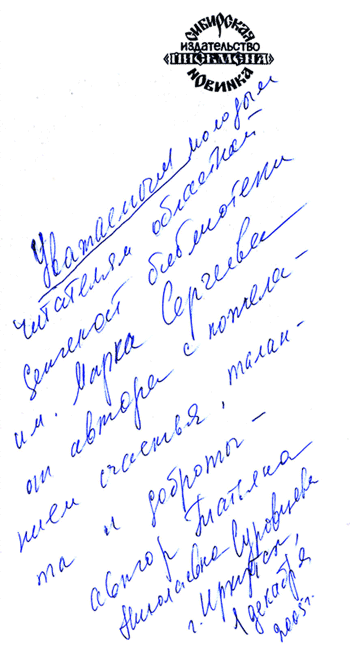 СИБИРСКАЯ
ИЗДАТЕЛЬСТВО
«ПИСЬМЕНА»
НОВИНКА
Уважаемым молодым
читателям областной
детской библиотеки
им. Марка Сергеева
от автора с пожела-
нием счастья, талан-
та и доброты –
автор Татьяна
Николаевна Суровцева
г. Иркутск,
1 декабря
2005г.